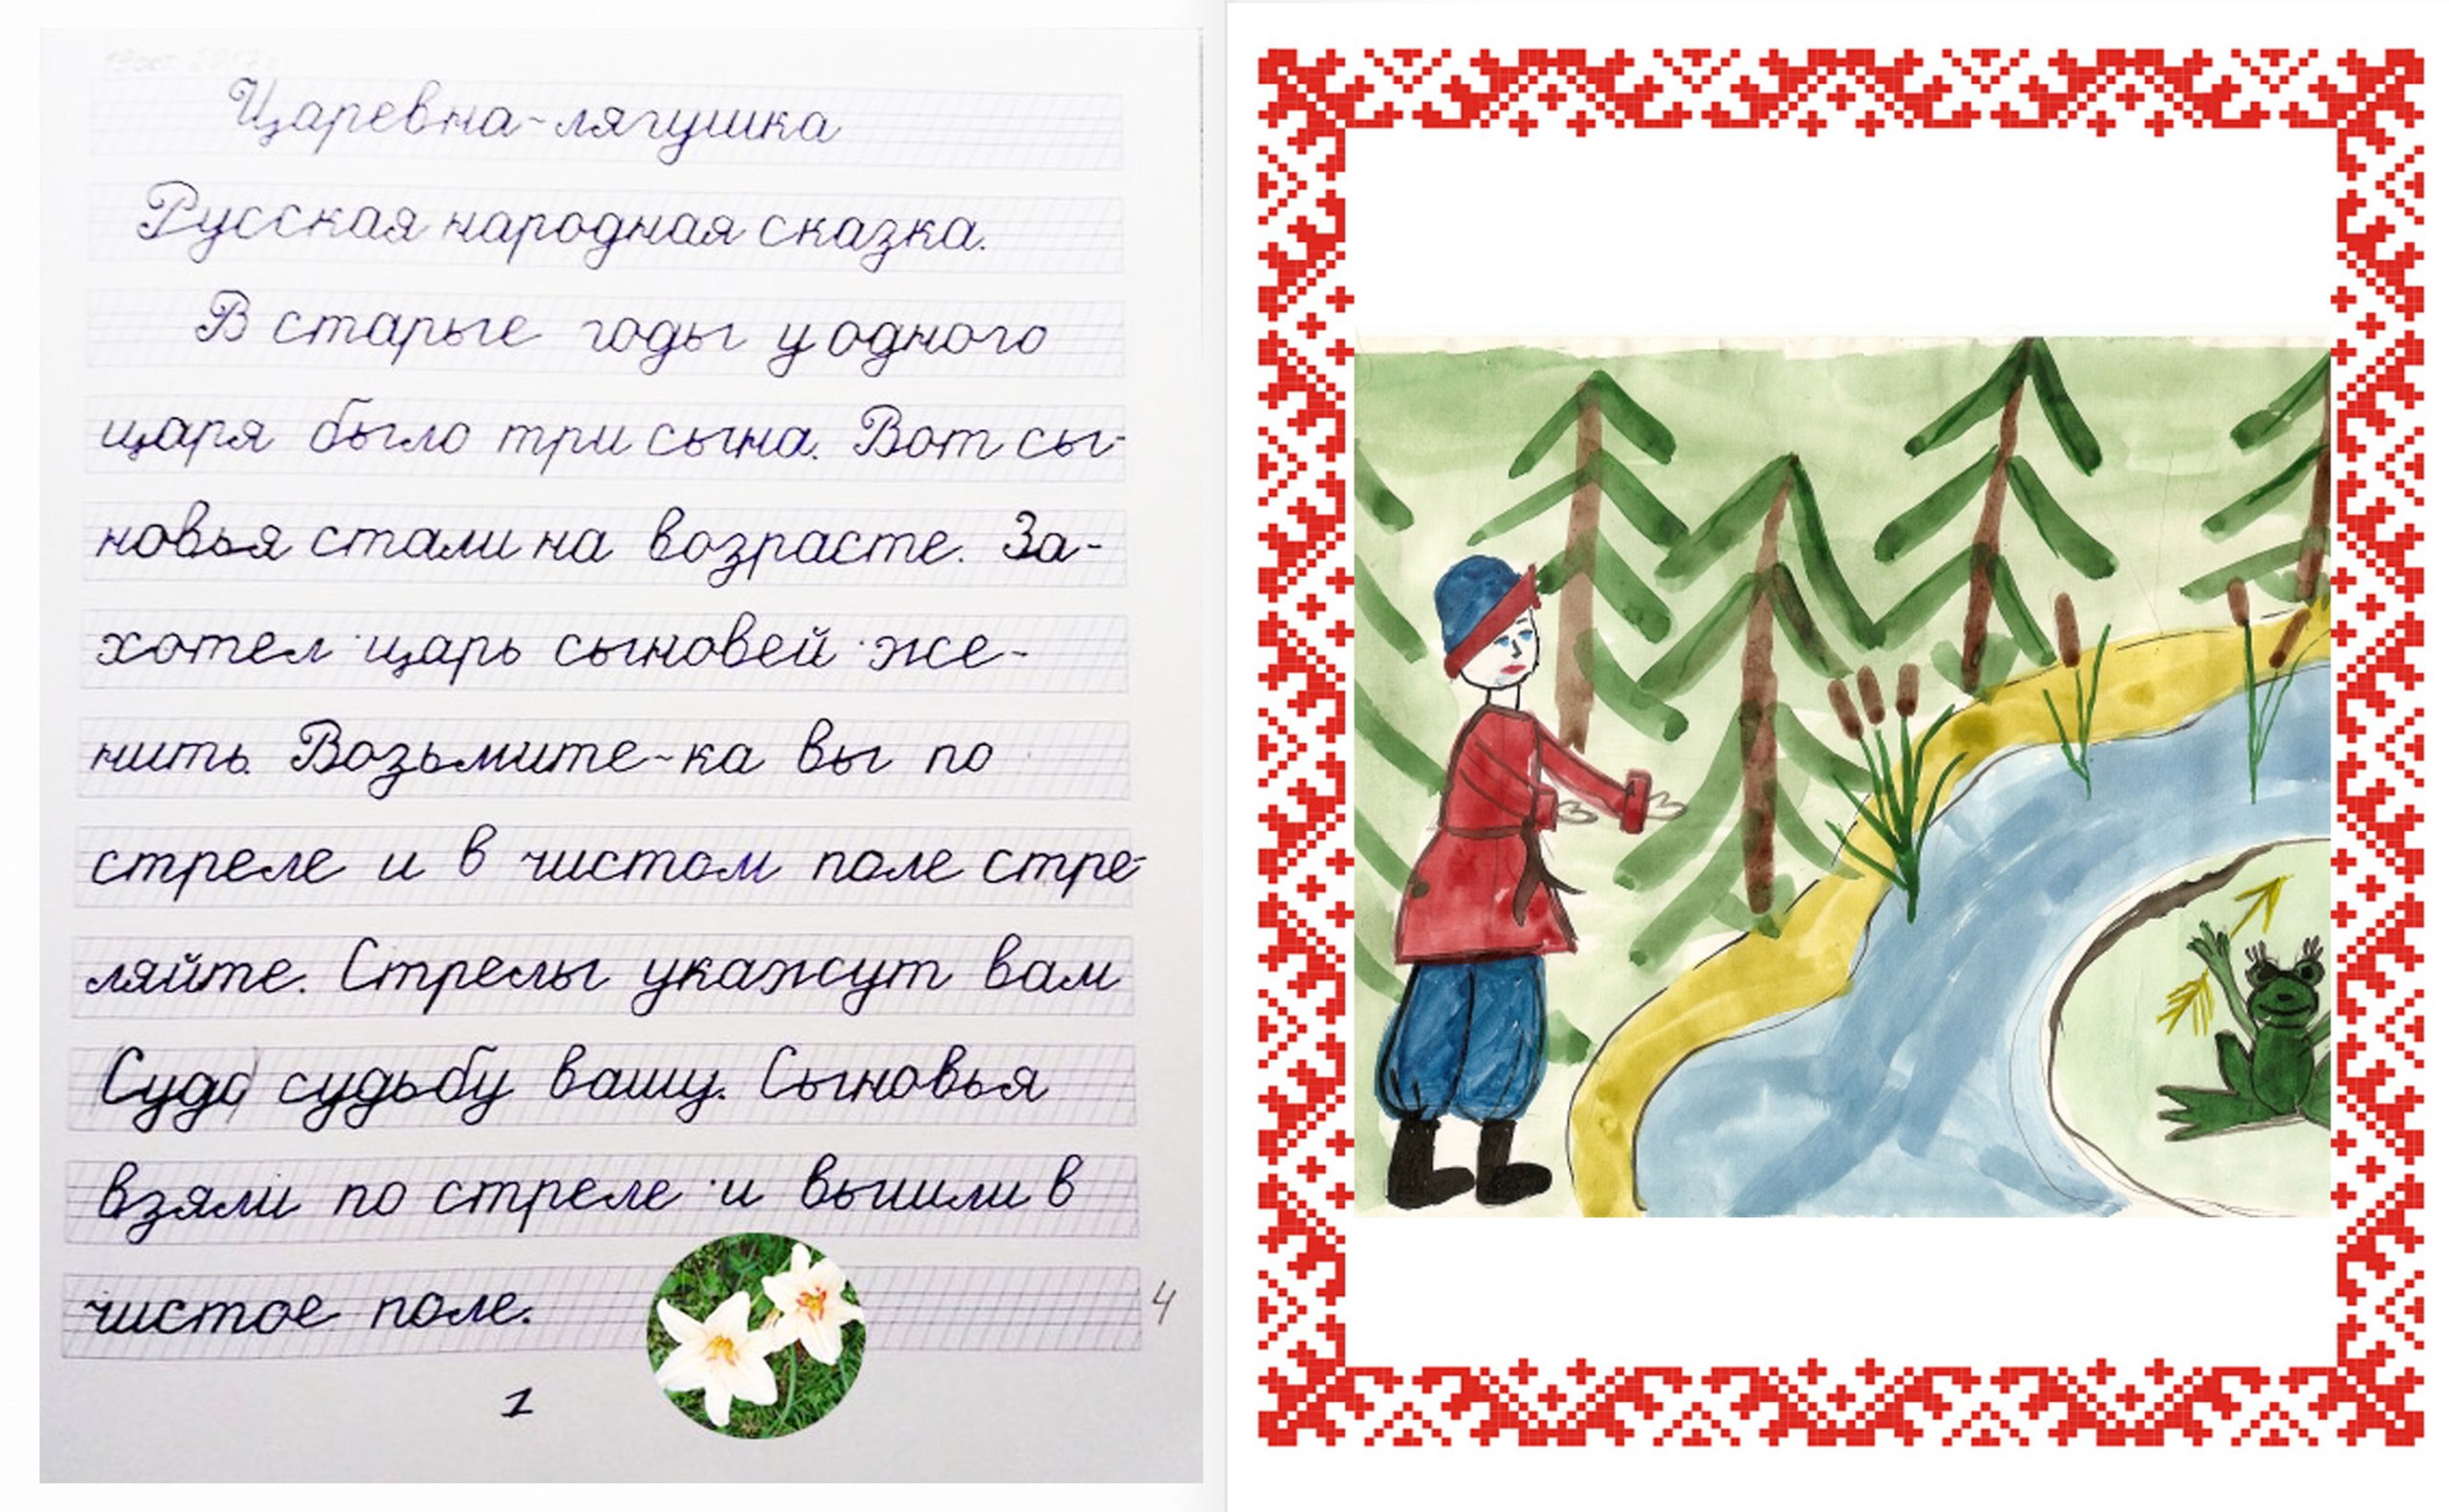 Царевна-лягушка
Русская народная сказка.
В старые годы у одного
царя было три сына. Вот сы-
новья стали на возрасте. За-
хотел царь сыновей же-
нить. Возьмите-ка вы по
стреле и в чистом поле стре-
ляйте. Стрелы укажут вам
судьбу вашу. Сыновья
взяли по стреле и вышли в
чистое поле.
4
1